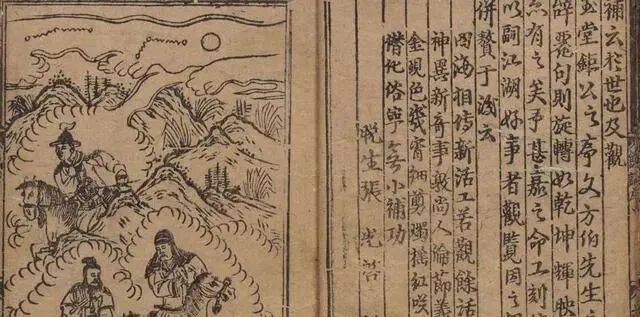 補云於世也及觀
玉堂鉅公之序文方伯先生之
辞麗句則旋轉如乾坤輝映
有之矣予甚嘉之命工刻
以嗣江湖好事者觀覧因之
併贅于後云
四海相傳新活工若觀餘話
神異新奇事敦尚人淪節義
金硯色幾宵細剪燭搖紅咲
化俗寧無小補功
晚生張光啓